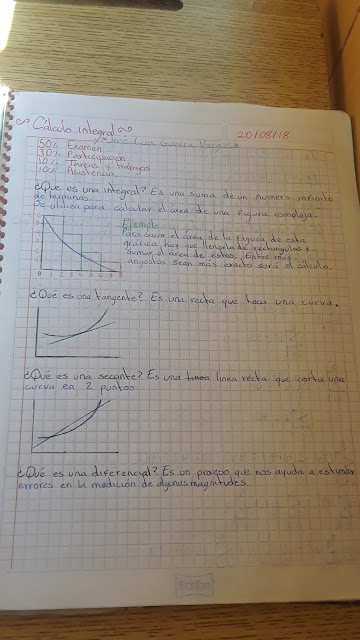 Cálculo integral
20/08/18
José Luis Guerra Vargas
50% Examen
30% Participación
10% Tareas y trabajos
10% Asistencia
¿Qué es una integral? Es una suma de un numero infinito
de terminos.
Se utiliza para calcular el área de una figura compleja.
Ejemplo
Para sacar el área de la figura de esta
gráfica hay que llenarla de rectangulos y
sumar el area de estos. Entre más
angostos sean más exacto será el cálculo.
0 1 2 3 4 5 6 7 8
¿Qué es una tangente? Es una recta que toca una curva.
¿Qué es una secante? Es una linea recta que corta una
curva en 2 puntos
¿Qué es una diferencial? Es un proceso que nos ayuda a estimar
errores en la medición de algunas magnitudes.
Scribe